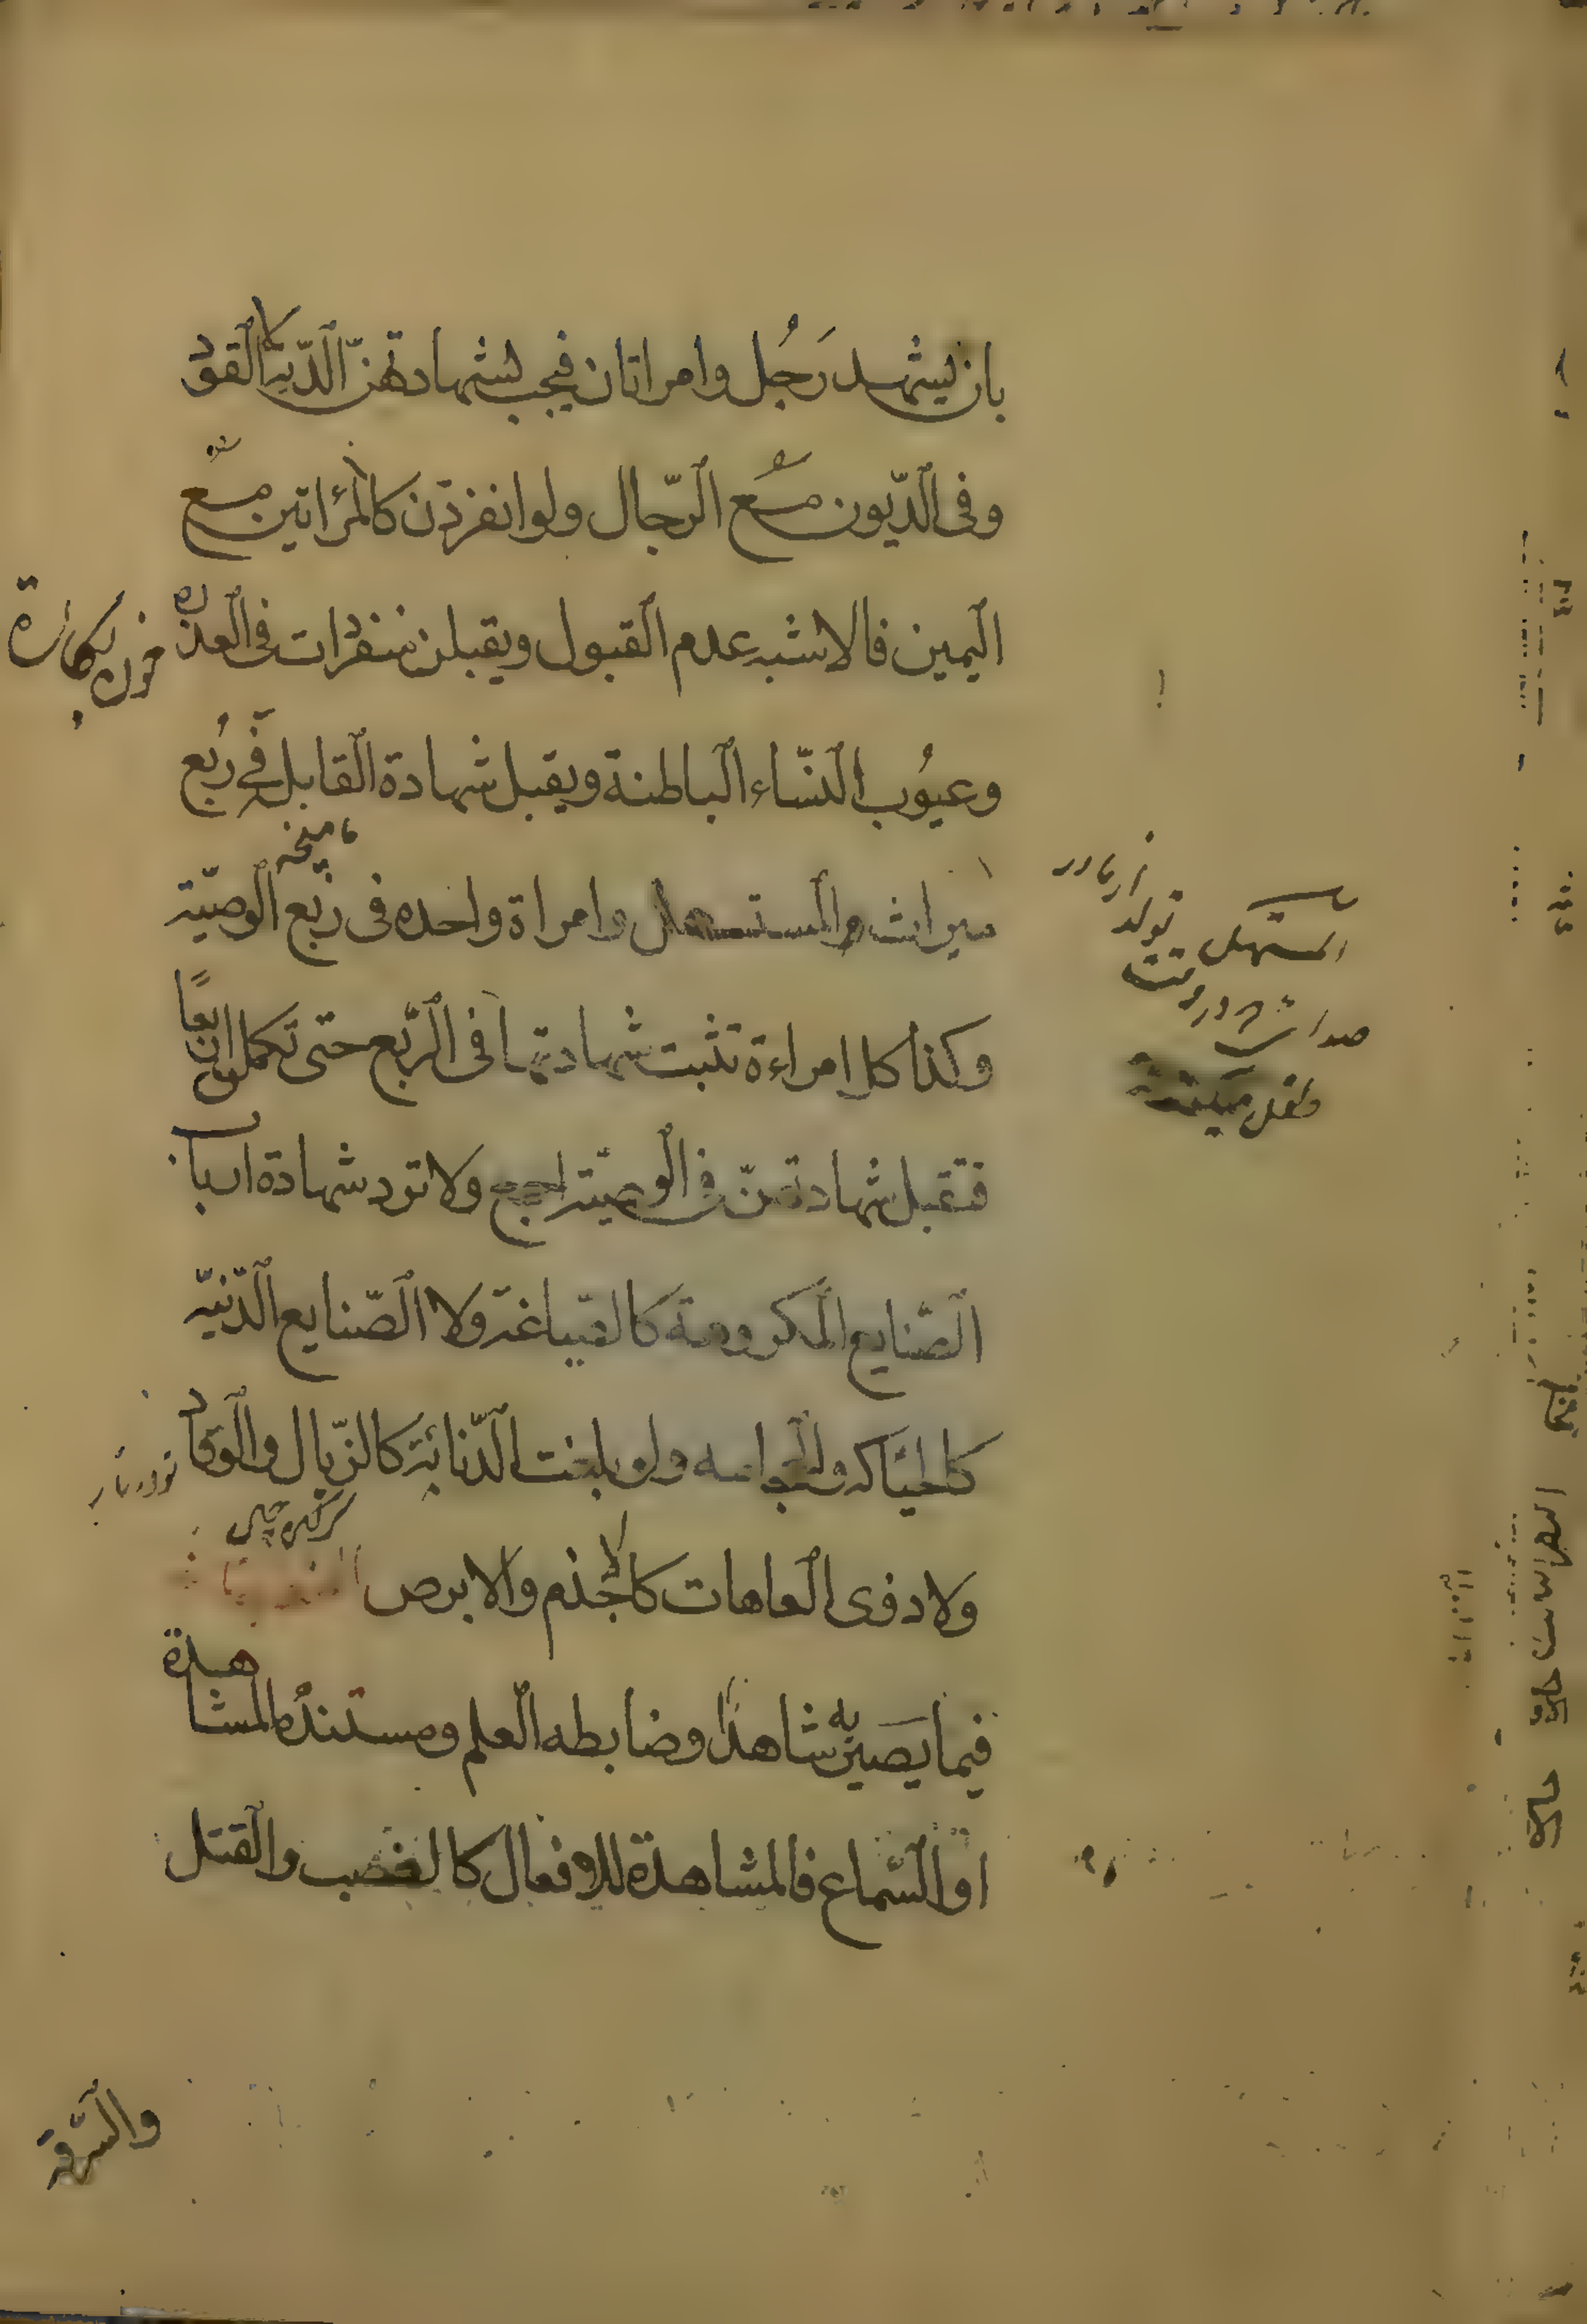 بان يشهد رَجُل وامراتان فيجب بشهادتهنّ الدّية لا القود
وفى الدّيون مع الرّجال ولو انفردن كالمرٔاتين مع
اليمين فالاشبه عدم القبول ويقبلن منفردات فى العذره
وعيُوب النّساء الباطنة ويقبل شهادة القابله فى رُبع
ميراث المستهل وامراة واحده فى ربع الوصيّة
وكذا كل امراءة تثبت شهادتها فى الرّبع حتى تكملن اربعًا
فتقبل شهادتهنّ فى الوصيّة اجمع ولا ترد شهادة ارباب
الصّنايع المكروهة كالصّياغة ولا الصّنايع الدّنيّه
كالحيّاكه والحجامه ولو بلغت الدّنائة كالزّبال والوقاد
ولا ذوى العاهات كالاجذم والابرص
فيما يَصير به شاهدًا وضابطه العلم ومستندُه المشاهدة
او السّماع فالمشاهدة للافعال كالغصب والقتل
المستهل
تولد
طفل
والسّرقة